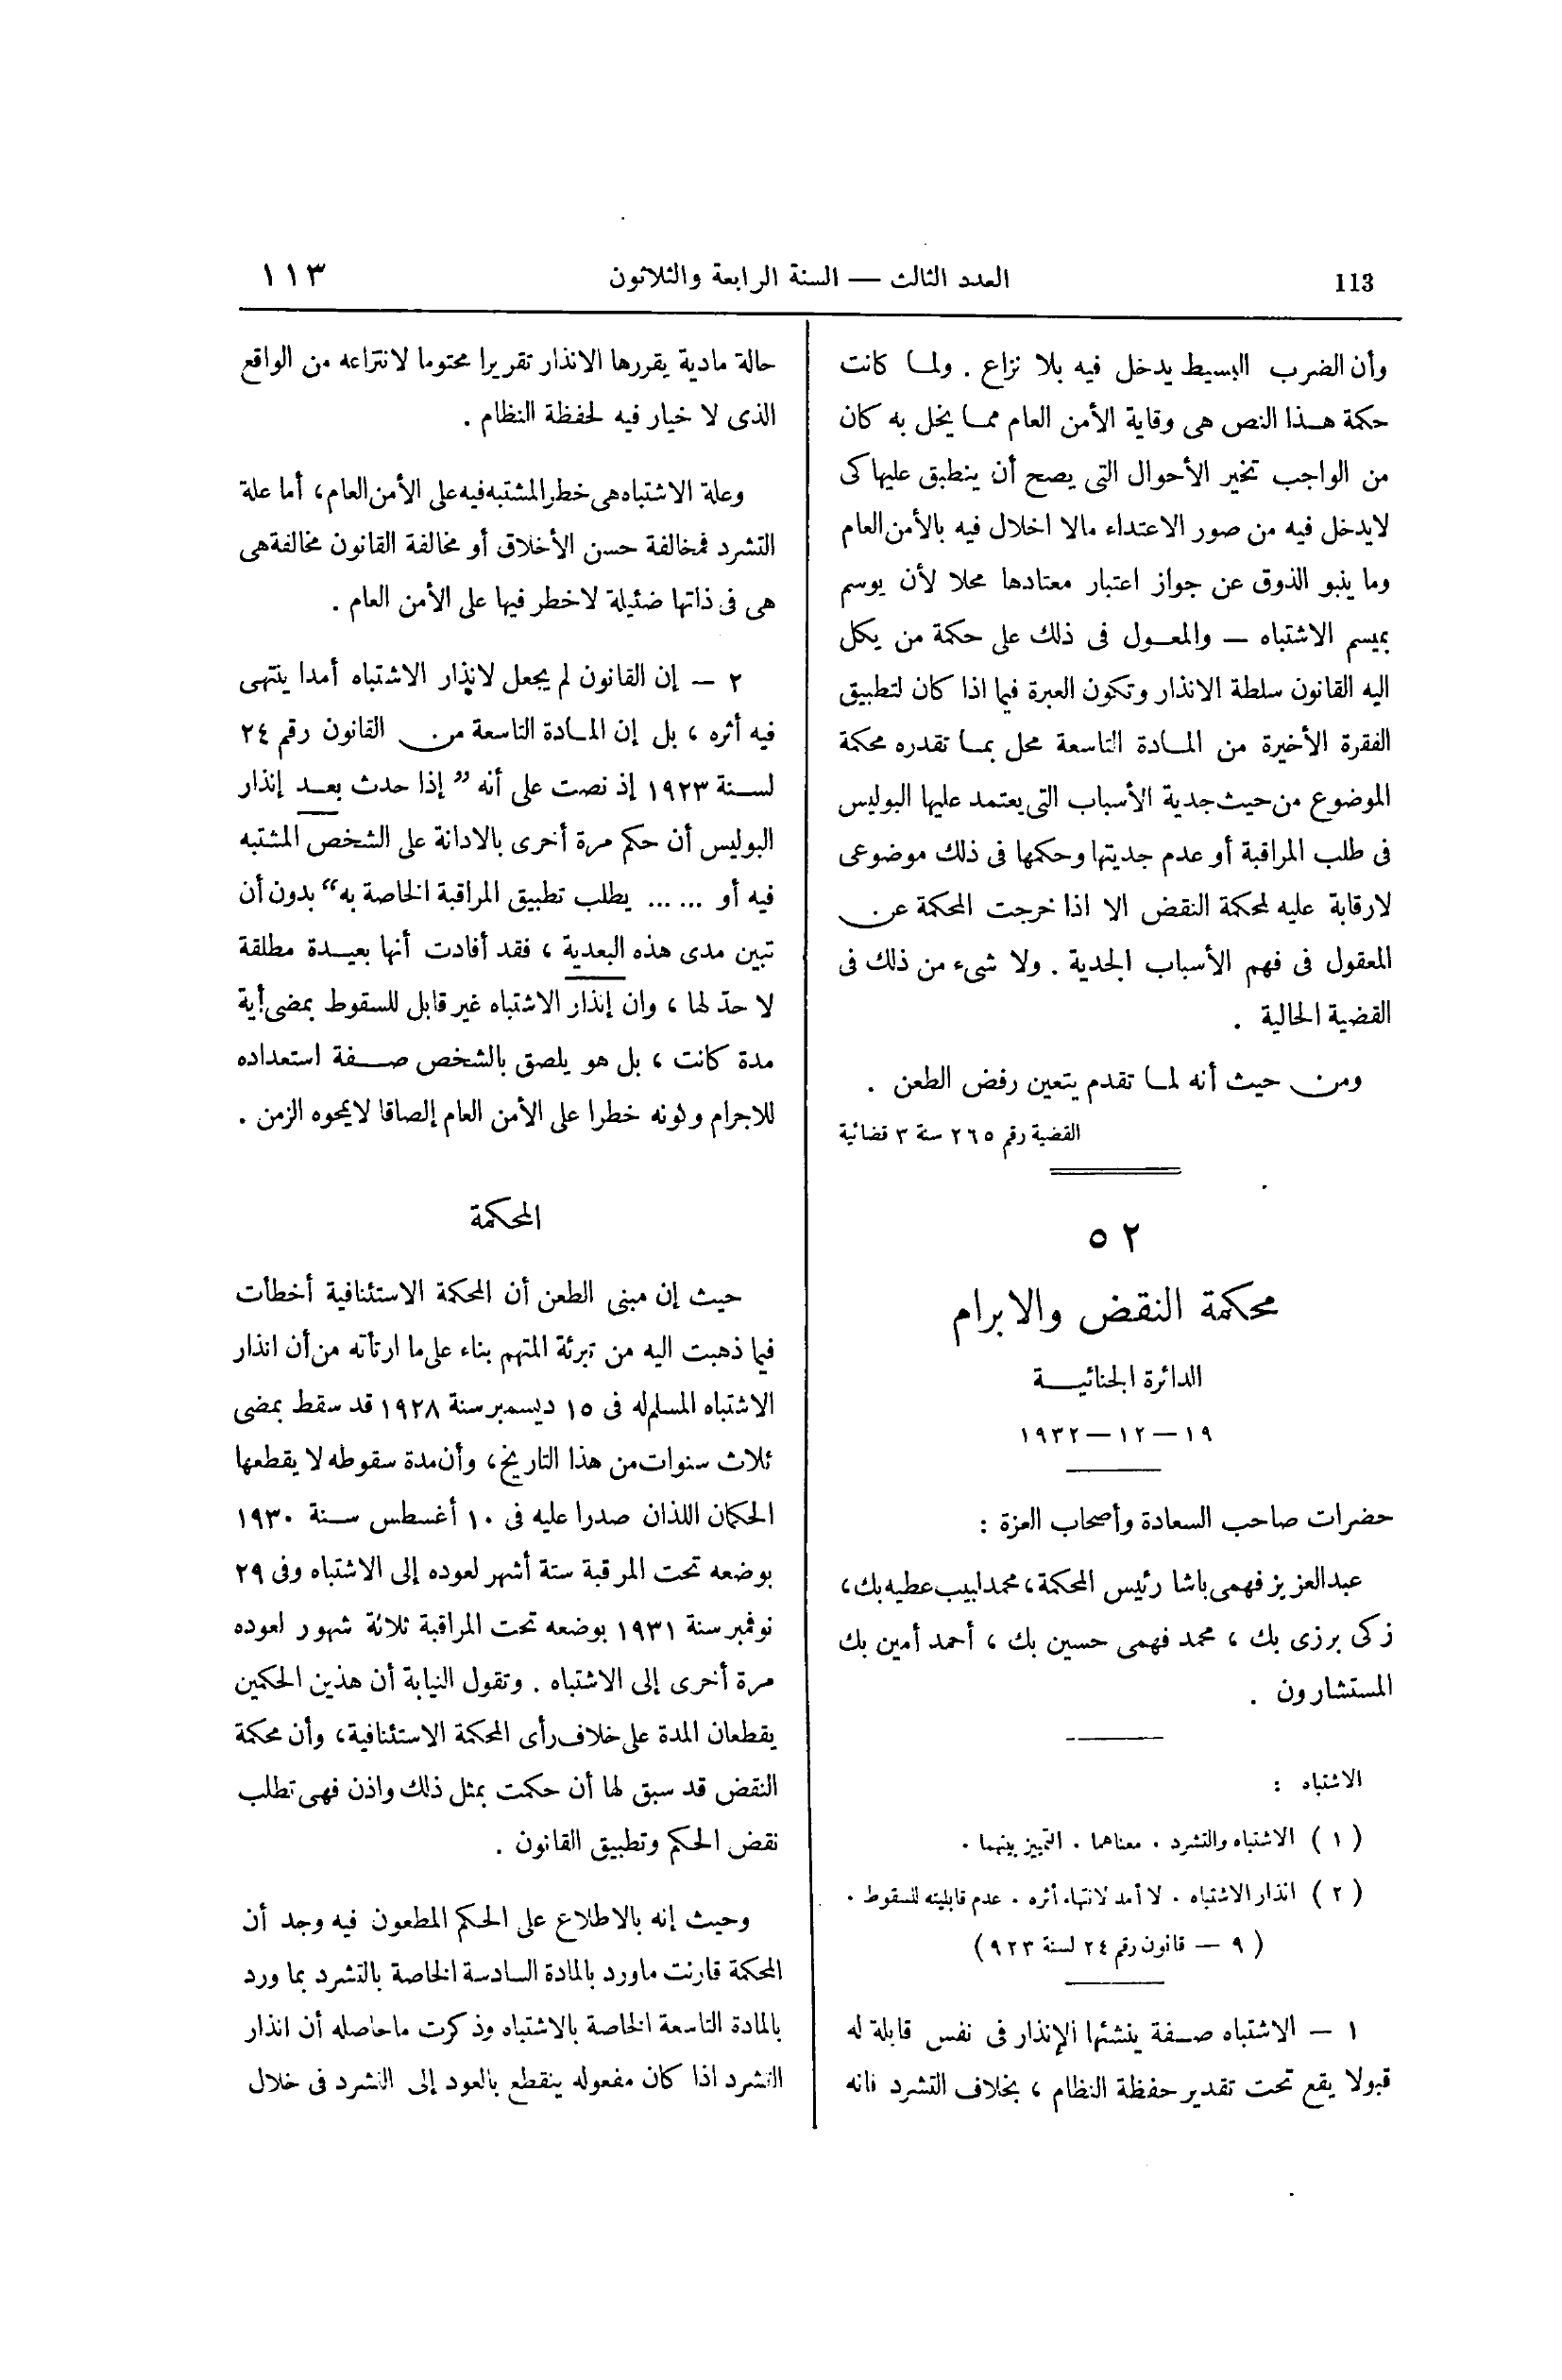 113
العدد الثالث — السنة الرابعة والثلاثون
١١٣
وأن الضرب البسيط يدخل فيه بلا نزاع . ولما كانت
حكمة هذا النص هى وقاية الأمن العام مما يخل به كان
من الواجب تخير الأحوال التى يصح أن ينطبق عليها كى
لايدخل فيه من صور الاعتداء مالا اخلال فيه بالأمن العام
وما ينبو الذوق عن جواز اعتبار معتادها محلا لأن يوسم
بميسم الاشتباه — والمعول فى ذلك على حكمة من يكل
اليه القانون سلطة الانذار وتكون العبرة فيما اذا كان لتطبيق
الفقرة الأخيرة من المادة التاسعة محل بما تقدره محكمة
الموضوع من حيث جدية الأسباب التى يعتمد عليها البوليس
فى طلب المراقبة أو عدم جديتها وحكمها فى ذلك موضوعى
لارقابة عليه لمحكمة النقض الا اذا خرجت المحكمة عن
المعقول فى فهم الأسباب الجدية . ولا شىء من ذلك فى
القضية الحالية .
ومن حيث أنه لما تقدم يتعين رفض الطعن .
القضية رقم ٢٦٥ سنة ٣ قضائية
٥٢
محكمة النقض والابرام
الدائرة الجنائية
١٩ — ١٢ — ١٩٣٢
حضرات صاحب السعادة وأصحاب العزة :
عبد العزيز فهمى باشا رئيس المحكمة، محمد لبيب عطيه بك،
زكى برزى بك ، محمد فهمى حسين بك ، أحمد أمين بك
المستشارون .
الاشتباه :
( ١ ) الاشتباه والتشرد . معناهما . التمييز بينهما .
( ٢ ) انذار الاشتباه . لا أمد لانتهاء أثره . عدم قابليته للسقوط .
( ٩ — قانون رقم ٢٤ لسنة ٩٢٣)
١ — الاشتباه صفة ينشئها الإنذار فى نفس قابلة له
قبولا يقع تحت تقدير حفظة النظام ، بخلاف التشرد فانه
حالة مادية يقررها الانذار تقريرا محتوما لانتزاعه من الواقع
الذى لا خيار فيه لحفظة النظام .
وعلة الاشتباه هى خطر المشتبه فيه على الأمن العام، أما علة
التشرد فمخالفة حسن الأخلاق أو مخالفة القانون مخالفة هى
هى فى ذاتها ضئيلة لاخطر فيها على الأمن العام .
٢ — إن القانون لم يجعل لانذار الاشتباه أمدا ينتهى
فيه أثره ، بل إن المادة التاسعة من القانون رقم ٢٤
لسنة ١٩٢٣ إذ نصت على أنه ”إذا حدث بعد إنذار
البوليس أن حكم مرة أخرى بالادانة على الشخص المشتبه
فيه أو ... ... يطلب تطبيق المراقبة الخاصة به“ بدون أن
تبين مدى هذه البعدية ، فقد أفادت أنها بعيدة مطلقة
لا حدّ لها ، وان إنذار الاشتباه غير قابل للسقوط بمضى أية
مدة كانت ، بل هو يلصق بالشخص صفة استعداده
للاجرام وكونه خطرا على الأمن العام إلصاقا لايمحوه الزمن .
المحكمة
حيث إن مبنى الطعن أن المحكمة الاستئنافية أخطأت
فيما ذهبت اليه من تبرئة المتهم بناء على ما ارتأته من أن انذار
الاشتباه المسلم له فى ١٥ ديسمبر سنة ١٩٢٨ قد سقط بمضى
ثلاث سنوات من هذا التاريخ، وأن مدة سقوطه لا يقطعها
الحكمان اللذان صدرا عليه فى ١٠ أغسطس سنة ١٩٣٠
بوضعه تحت المرقبة ستة أشهر لعوده إلى الاشتباه وفى ٢٩
نوفمبر سنة ١٩٣١ بوضعه تحت المراقبة ثلاثة شهور لعوده
مرة أخرى إلى الاشتباه . وتقول النيابة أن هذين الحكمين
يقطعان المدة على خلاف رأى المحكمة الاستئنافية، وأن محكمة
النقض قد سبق لها أن حكمت بمثل ذلك واذن فهى تطلب
نقض الحكم وتطبيق القانون .
وحيث إنه بالاطلاع على الحكم المطعون فيه وجد أن
المحكمة قارنت ماورد بالمادة السادسة الخاصة بالتشرد بما ورد
بالمادة التاسعة الخاصة بالاشتباه وذكرت ماحاصله أن انذار
التشرد اذا كان مفعوله ينقطع بالعود إلى التشرد فى خلال